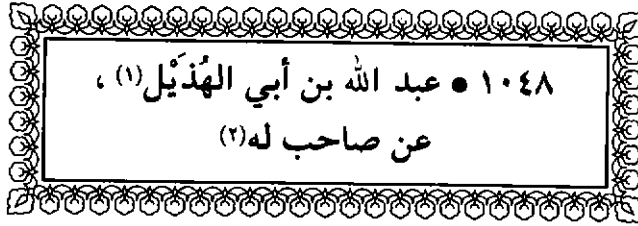 ١٠٤٨ • عبد الله بن أبي الهُذَيْل(١) ،
عن صاحب له(٢)